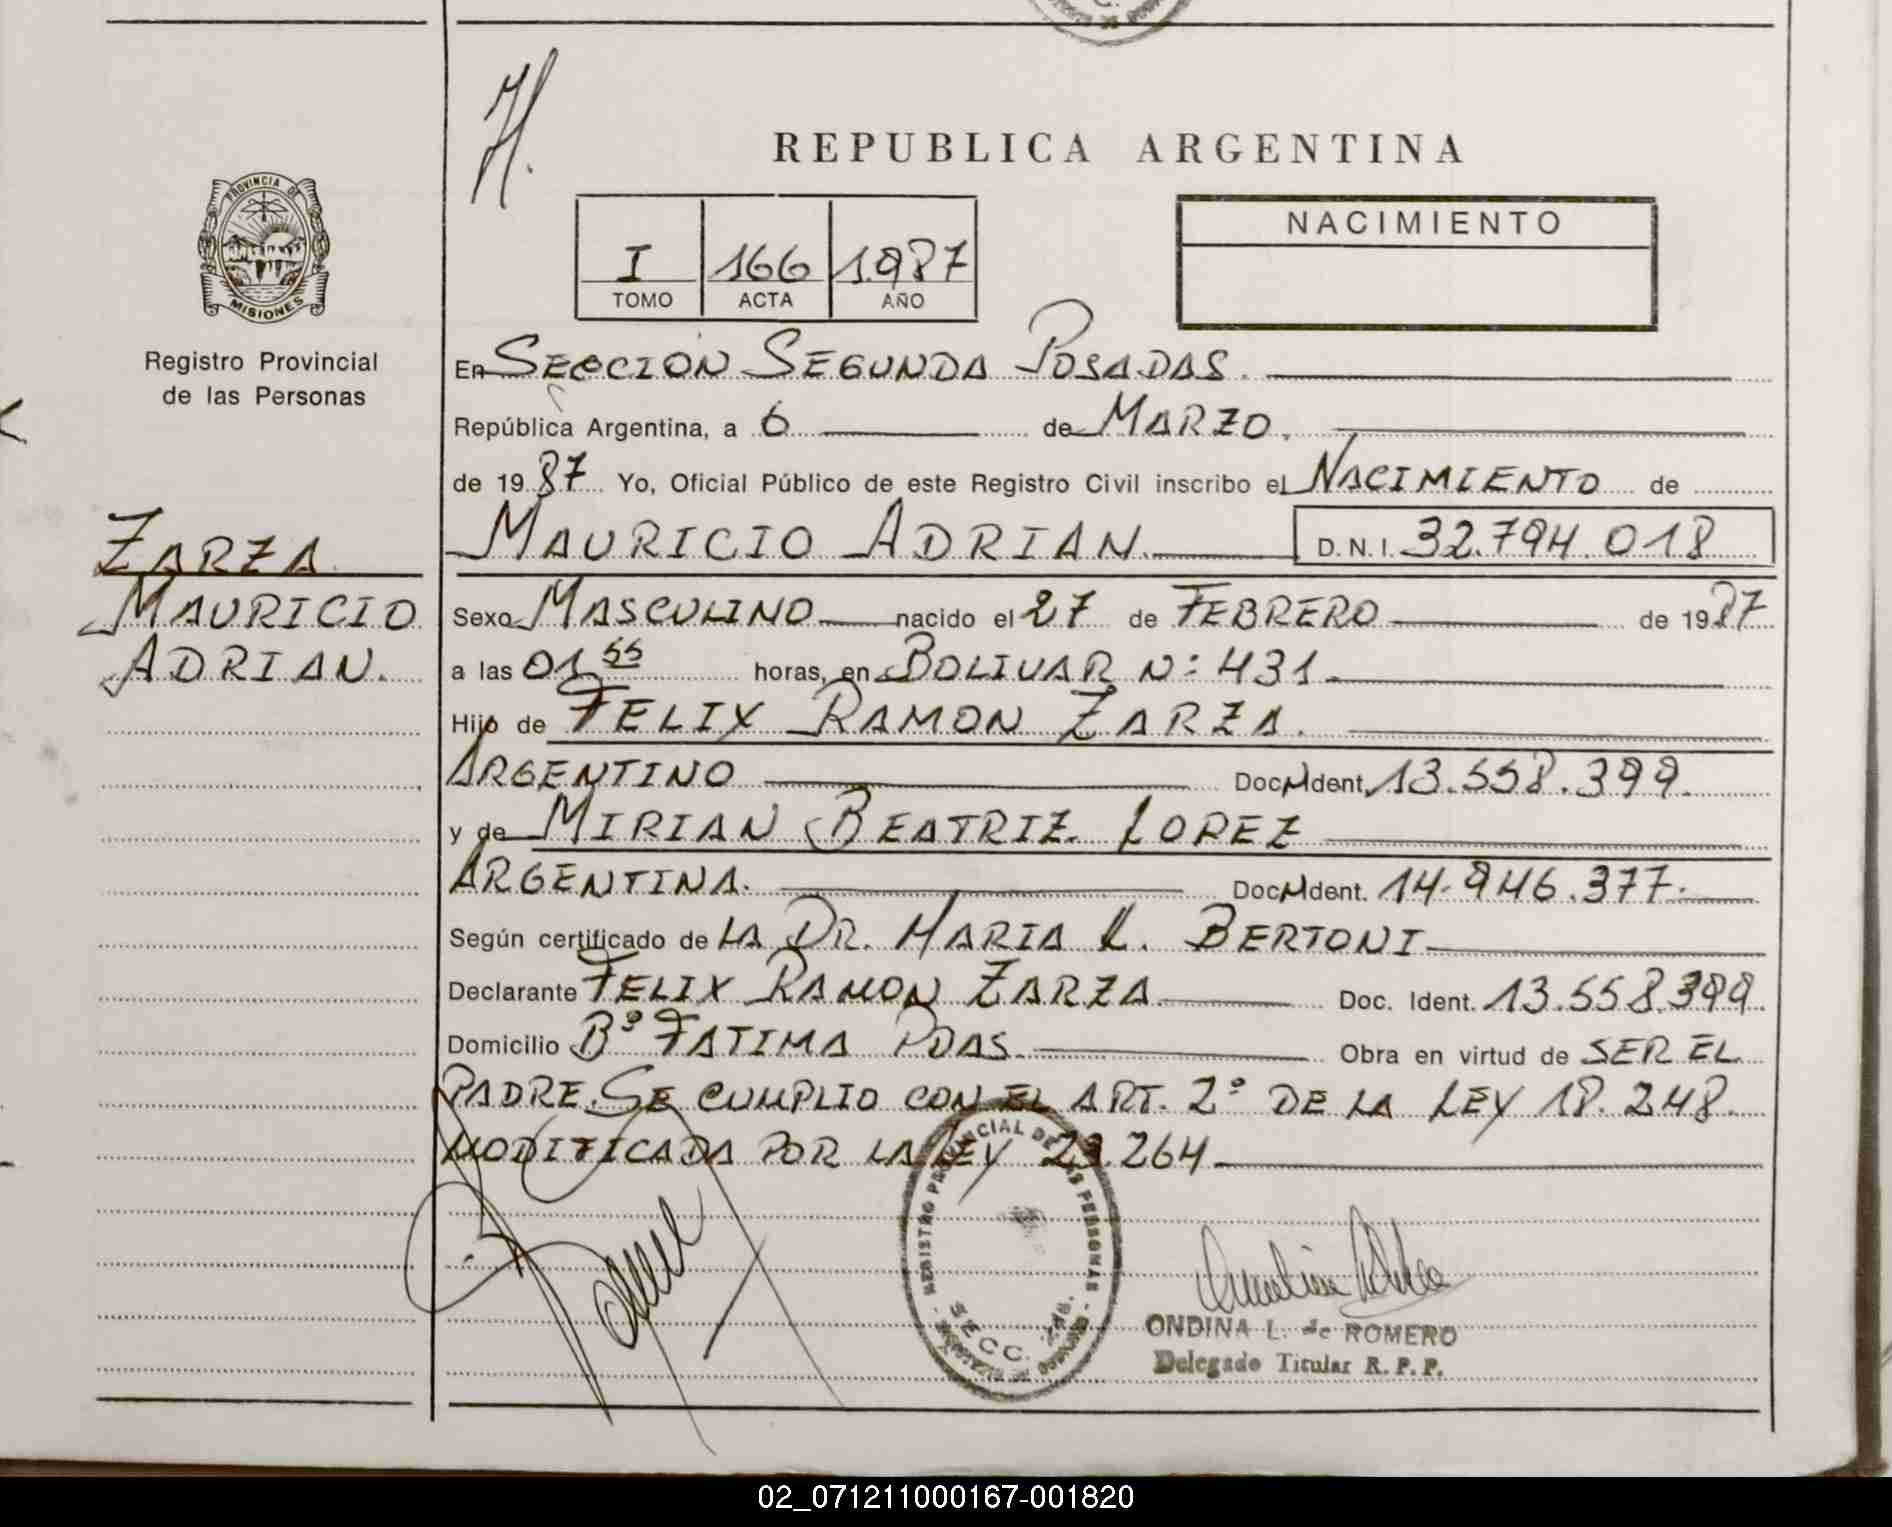 H.
REPUBLICA ARGENTINA
PROVINCIA DE
MISIONES
I 166 1.987
TOMO ACTA AÑO
NACIMIENTO
Registro Provincial
de las Personas
En SECCION SEGUNDA POSADAS.
República Argentina, a 6 de MARZO.
de 19 87 Yo, Oficial Público de este Registro Civil inscribo el NACIMIENTO de
MAURICIO ADRIAN. D.N.I. 32.794.018
ZARZA
MAURICIO
ADRIAN.
Sexo MASCULINO nacido el 27 de FEBRERO de 19 87
a las 01 55 horas, en BOLIVAR Nº 431.
Hijo de FELIX RAMON ZARZA.
ARGENTINO Doc. Ident. 13.558.399.
y de MIRIAN BEATRIZ LOPEZ
ARGENTINA. Doc. Ident. 14.946.377.
Según certificado de LA DR. MARIA L. BERTONI
Declarante FELIX RAMON ZARZA Doc. Ident. 13.558.399
Domicilio Bº FATIMA PDAS. Obra en virtud de SER EL
PADRE. SE CUMPLIO CON EL ART. 2º DE LA LEY 18.248.
MODIFICADA POR LA LEY 23.264
REGISTRO PROVINCIAL DE LAS PERSONAS
SECC. 2da.
ONDINA L. de ROMERO
Delegado Titular R. P. P.
02_071211000167-001820